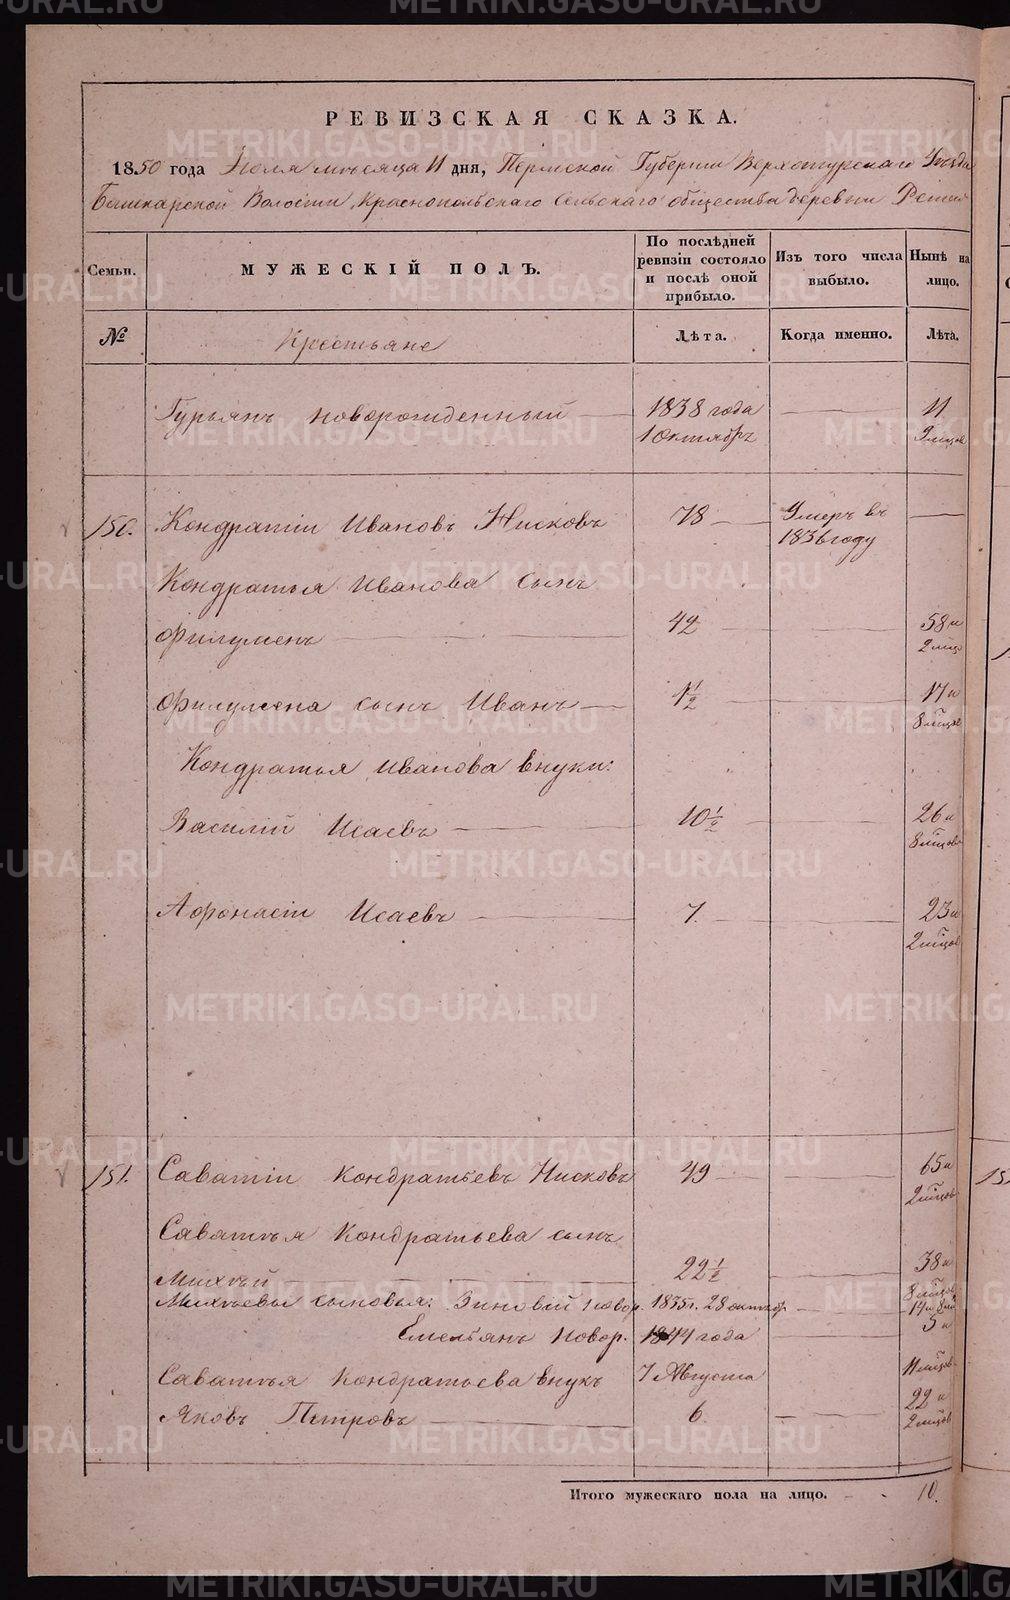 РЕВИЗСКАЯ СКАЗКА.
1850 года Июля месяца 11 дня, Пермской Губернии Верхотурскаго Уезда
Башкарской Волости, Краснопольскаго Сельскаго общества деревни
Семьи. МУЖЕСКІЙ ПОЛЪ. По послѣдней ревизіи состояло и послѣ оной прибыло. Изъ того числа выбыло. Нынѣ на лицо.
№ Крестьяне Лѣта. Когда именно. Лѣта.
Гурьянъ новорожденный 1838 года 1 Октябрь 11 9 мѣцов
150. Кондратій Ивановъ Нисковъ 78 Умеръ въ 1836 году
Кондратья Иванова сынъ
Филуменъ 42 58 и 2 мѣц
Филумена сынъ Иванъ 1 1/2 17 и 8 мѣцов
Кондратья Иванова внуки:
Василій Исаевъ 10 1/2 26 и 8 мѣцов
Афонасій Исаевъ 7. 23 и 2 мѣцов
151. Саватій Кондратьевъ Нисковъ 49 65 и 2 мѣцов
Саватѣя Кондратьева сынъ
Михѣй 22 1/2 38 и 8 мѣцов
Михѣевы сыновья: Зиновій новор. 1835 г. 28 октябр 14 и 8 мѣц
Емельянъ новор. 1844 года 5 и
Саватѣя Кондратьева внукъ 7 Августа 11 мѣцов
Яковъ Петровъ 6 22 и 2 мѣцов
Итого мужескаго пола на лицо. 10.
METRIKI.GASO-URAL.RU